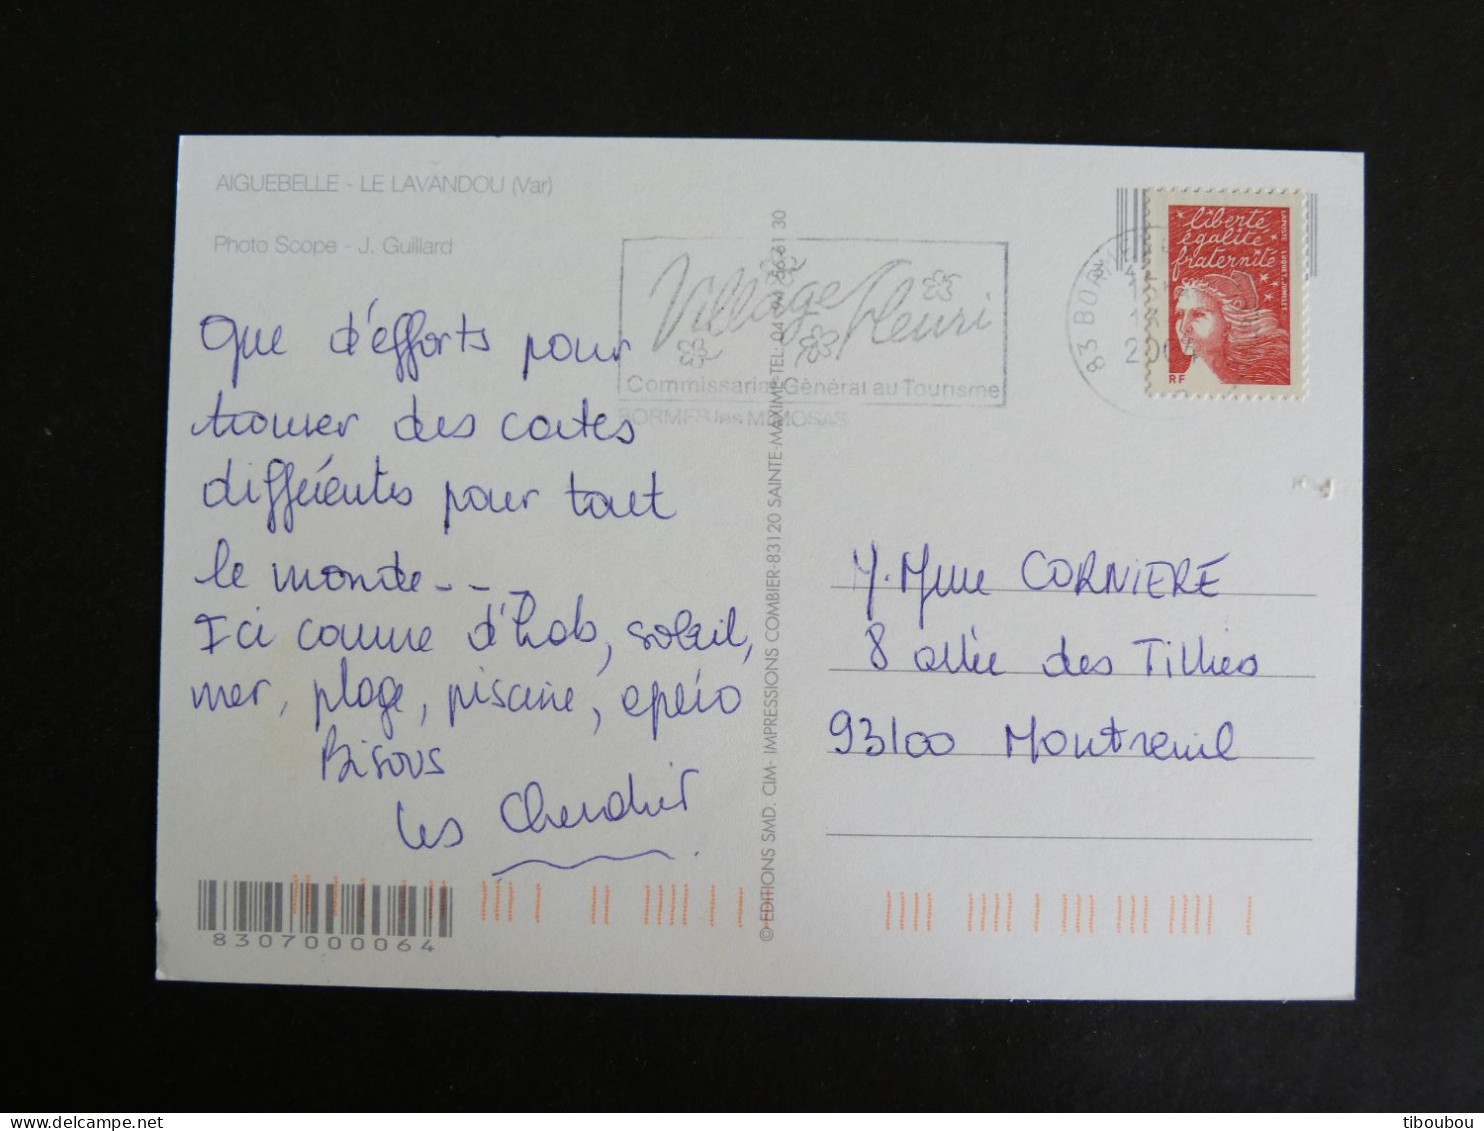 AIGUEBELLE - LE LAVANDOU (Var)
Photo Scope - J. Guillard
Que d'efforts pour
trouver des cartes
différentes pour tout
le monde - - -
Ici comme d'hab, soleil,
mer, plage, piscine, apéro
Bisous
Les
8307000064
Village Fleuri
Commissariat Général au Tourisme
BORMES les MIMOSAS
© EDITIONS SMD. CIM- IMPRESSIONS COMBIER-83120 SAINTE-MAXIME-TEL: 04 94 56 61 30
83 BORMES
2004
liberté
égalité
fraternité
RF
LA POSTE LUQUET. JUMELET
M. Mme CORNIERE
8 allée des Tilliers
93100 Montreuil
tiboubou